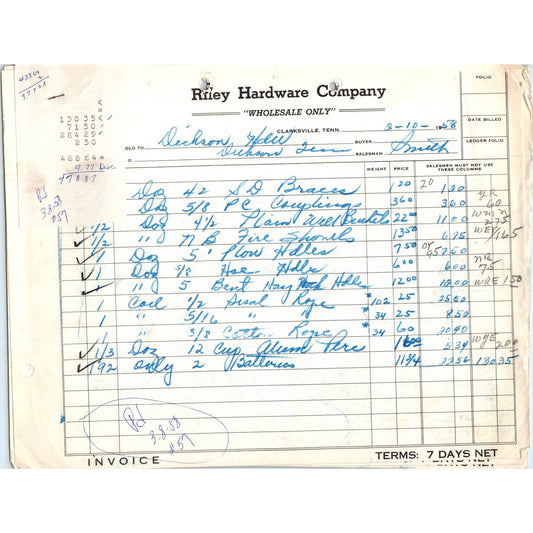 48864
9.77
13035
7150
28429
250
48864
9.77 Disc
47887
Pd
3-8-58
857
FOLIO
Riley Hardware Company
"WHOLESALE ONLY"
CLARKSVILLE, TENN. 2-10-1958
DATE BILLED
SOLD TO Dickson Hdw BUYER
LEDGER FOLIO
Dickson Tenn SALESMAN Smith
WEIGHT PRICE SALESMEN MUST NOT USE THESE COLUMNS
Doz 42 SD Braces 120 20 120
Doz 5/8 PC Couplings 360 360 60
1/2 Doz 4 1/2 Plain Well Buckets 2200 1100 275
1/2 " NB Fire Shovels 1350 675 165
1 Doz 5' Plow Hdles 750 750
1 Doz Hoe Hdle 600 600 75
1 " 5 Bent Hay Hdle 1200 1200 WRE 150
1 Coil 1/2 Sisal Rope 102 25 2550
1 " 5/16 " " 34 25 850
1 " 3/8 Cotton Rope 34 60 2040
1/3 Doz 12 Cup Alum Perc 1600 534 200
192 only 2 11 3/4 2256 13035
Pd
3-8-58
857
INVOICE
TERMS: 7 DAYS NET